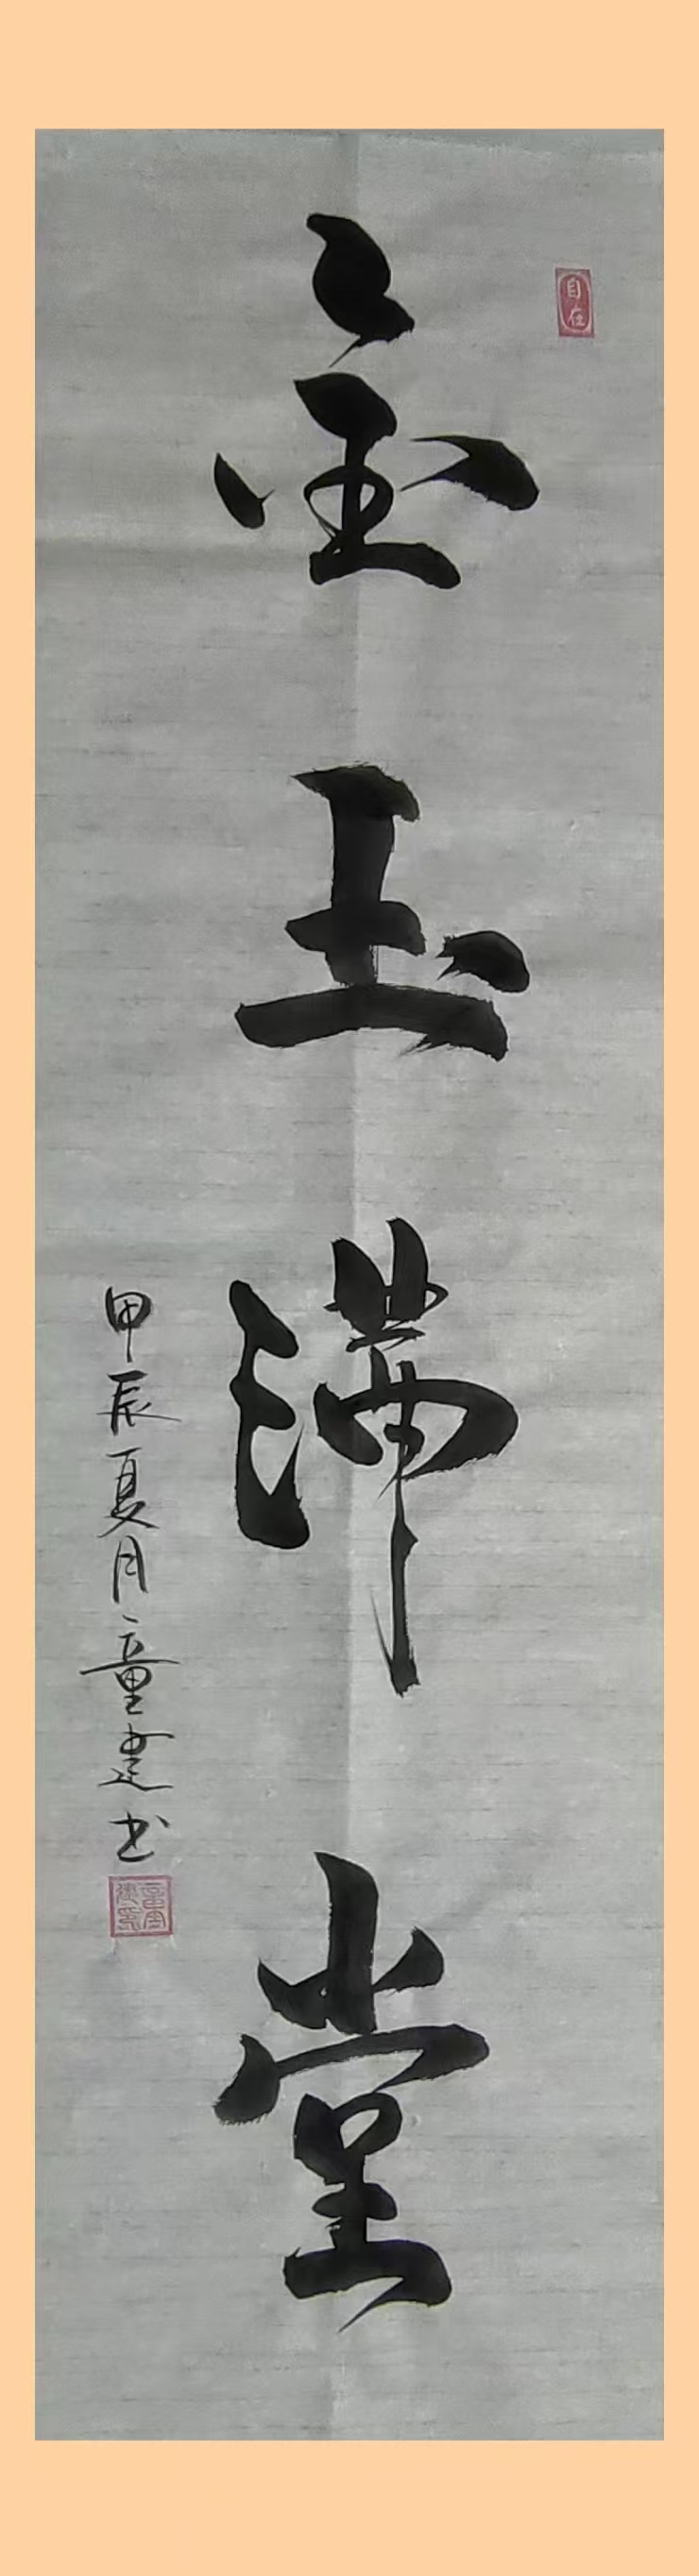 自在
金玉满堂
甲辰夏月童建书